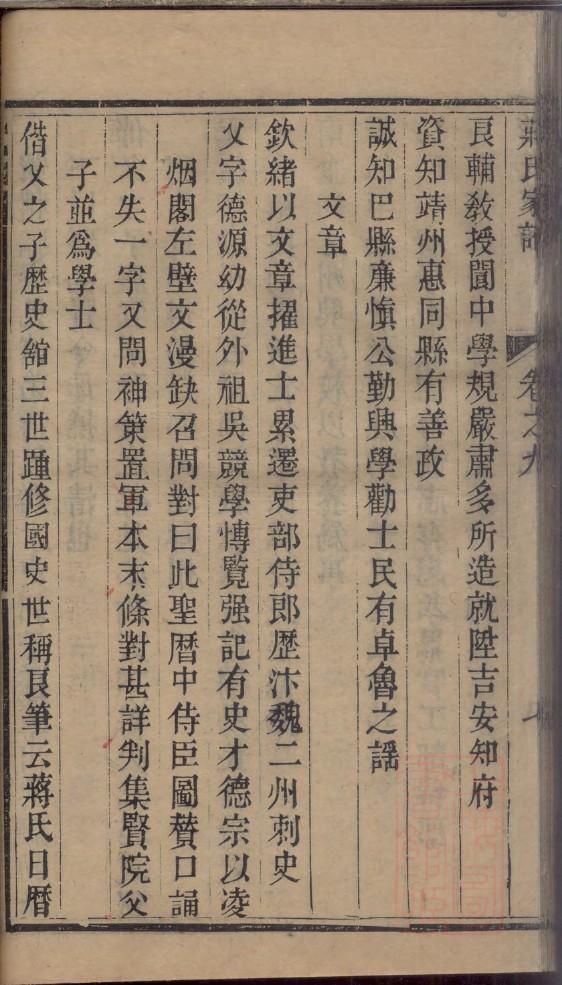 蔣氏家譜 卷之九
良輔敎授閩中學規嚴肅多所造就陞吉安知府
資知靖州惠同縣有善政
誠知巴縣廉愼公勤興學勸士民有卓魯之謡
文章
欽緒以文章擢進士累遷吏部侍郎歷汴魏二州刺史
乂字德源幼從外祖吳競學愽覽强記有史才德宗以凌
烟閣左壁文漫缺召問對曰此聖曆中侍臣圖贊口誦
不失一字又問神策置軍本末條對甚詳判集賢院父
子並爲學士
偕乂之子歷史舘三世踵修國史世稱良筆云蔣氏日曆